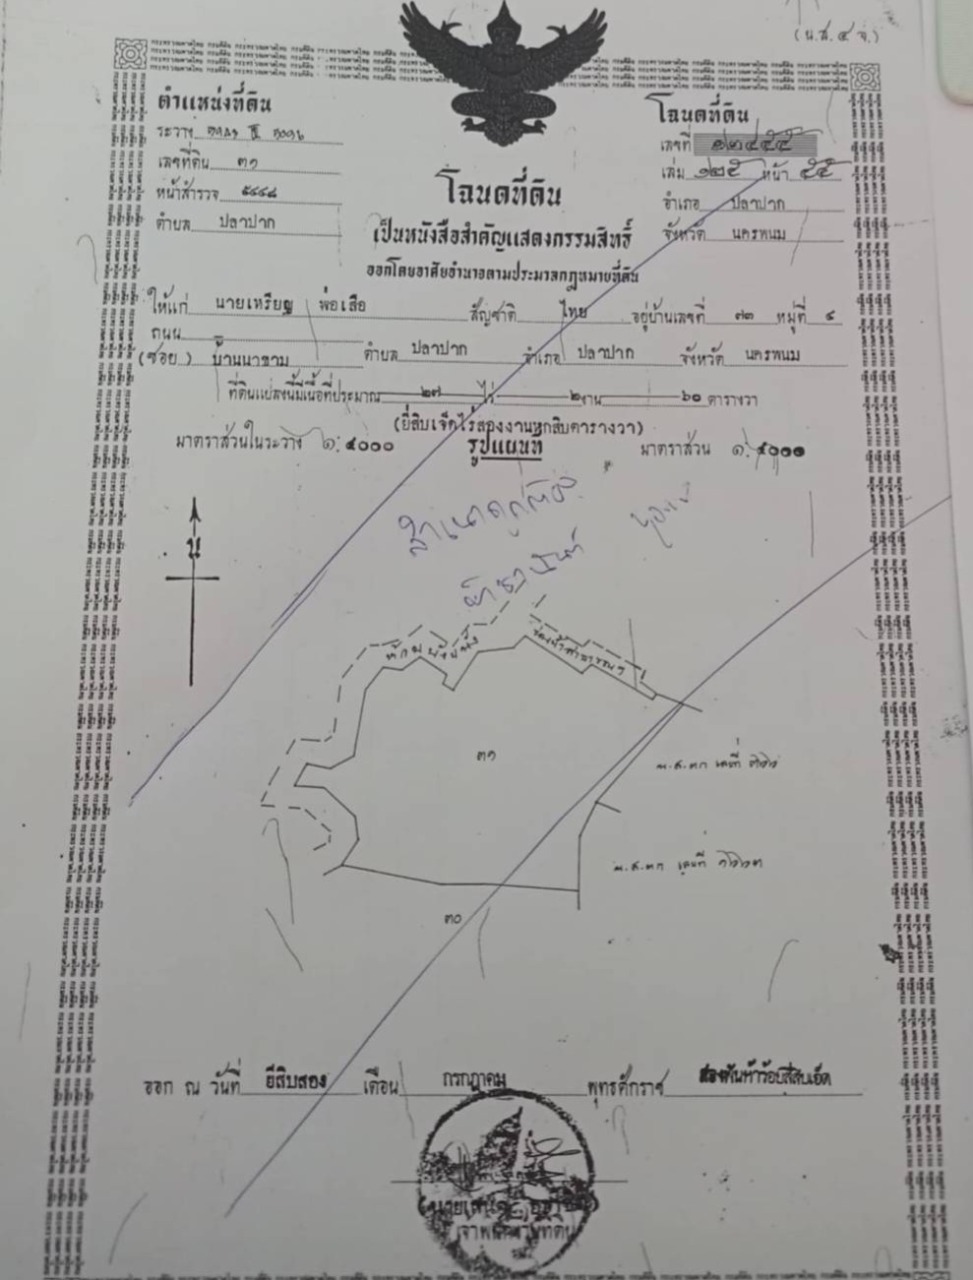 (น.ส.๔ จ.)
ตำแหน่งที่ดิน
ระวาง
เลขที่ดิน ๓๑
หน้าสำรวจ ๕๔๔๘
ตำบล ปลาปาก
โฉนดที่ดิน
เลขที่ ๑๒๔๕๕
เล่ม ๑๒๕ หน้า ๕๕
อำเภอ ปลาปาก
จังหวัด นครพนม
โฉนดที่ดิน
เป็นหนังสือสำคัญแสดงกรรมสิทธิ์
ออกโดยอาศัยอำนาจตามประมวลกฎหมายที่ดิน
ให้แก่ นายเหรียญ พ่อเสือ สัญชาติ ไทย อยู่บ้านเลขที่ ๗๓ หมู่ที่
ถนน
(ซอย) บ้านนาขาม ตำบล ปลาปาก อำเภอ ปลาปาก จังหวัด นครพนม
ที่ดินแปลงนี้มีเนื้อที่ประมาณ ๒๗ ไร่ ๒ งาน ๖๐ ตารางวา
(ยี่สิบเจ็ดไร่สองงานหกสิบตารางวา)
มาตราส่วนในระวาง ๑:๔๐๐๐ รูปแผนที่ มาตราส่วน
สำเนาถูกต้อง
น
ห้วยบังฮวก
ร่องน้ำสาธารณฯ
๓๑
น.ส.๓ก เลขที่
น.ส.๓ก เลขที่
๓๐
ออก ณ วันที่ ยี่สิบสอง เดือน กรกฎาคม พุทธศักราช สองพันห้าร้อยสี่สิบเอ็ด
เจ้าพนักงานที่ดิน